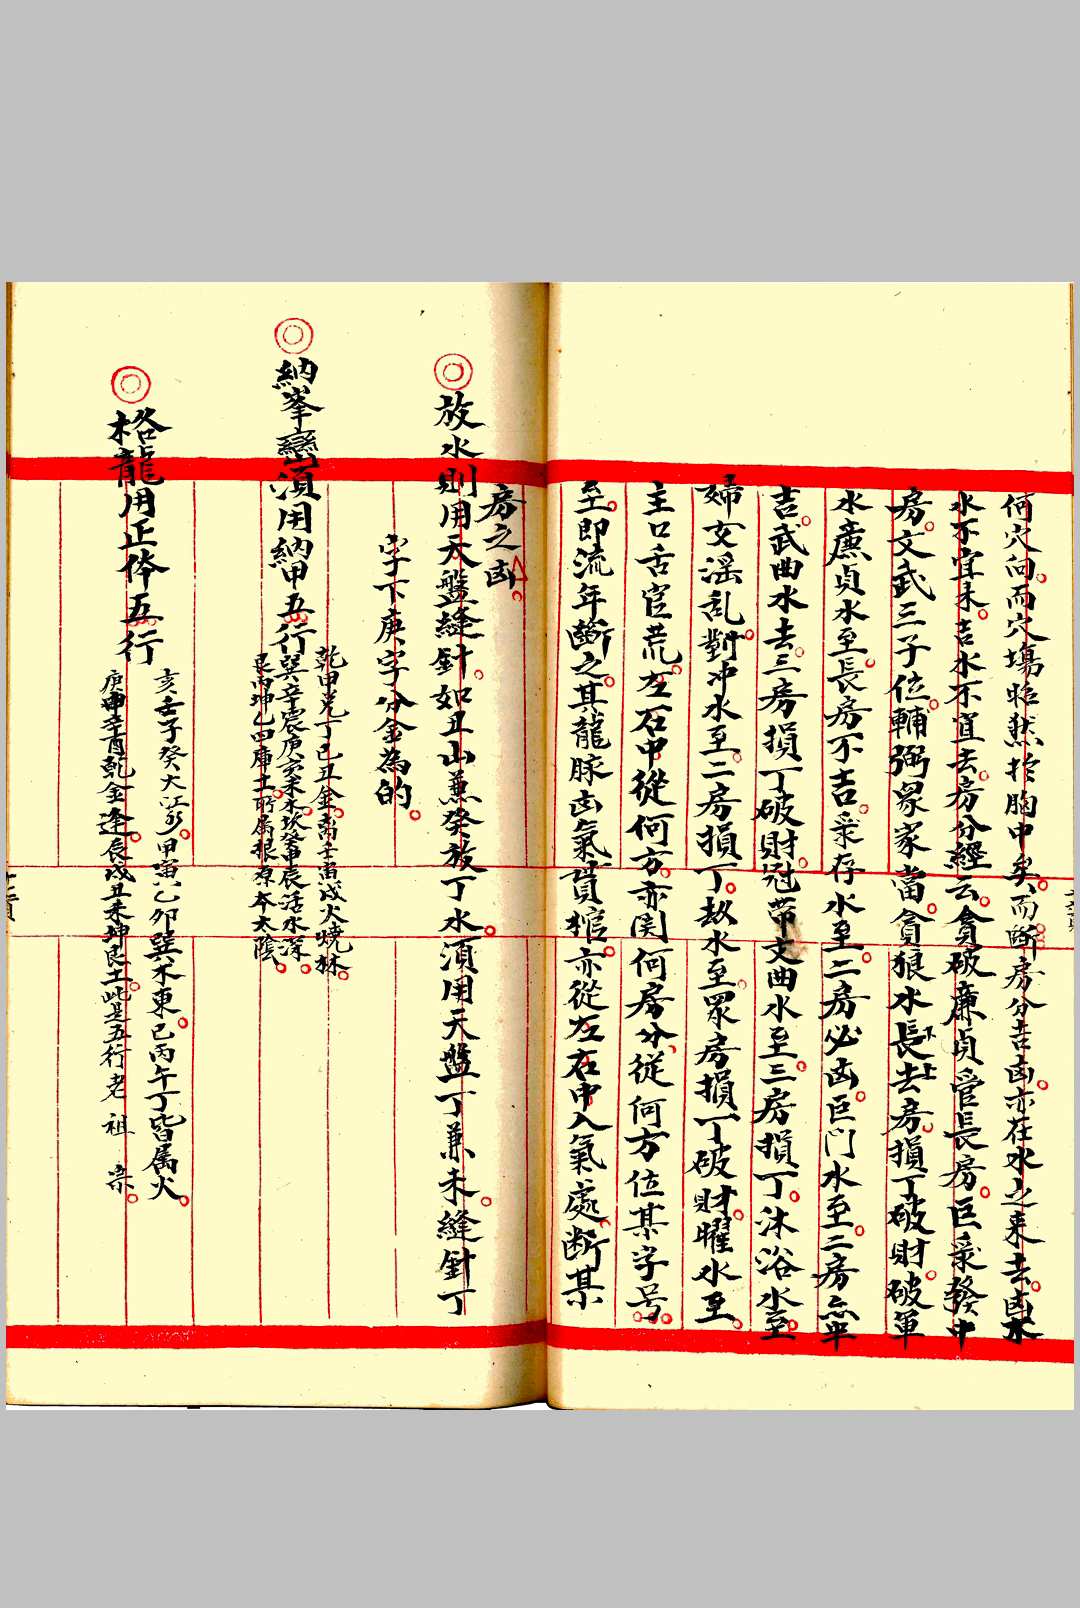 何穴向而穴塲昭然於胸中矣而斷房分吉凶亦在水之来去凶水
水不宜来吉水不宜去房分經云貪破廉貞管長房巨彔發中
房文武三子位輔弼眾家當貪狼水長去房損丁破財破軍
水廉貞水至長房不吉彔存水至二房必凶巨門水至二房亦平
吉武曲水去三房損丁破財冠帶文曲水至三房損丁沐浴水至
婦女滛乱對冲水至二房損丁劫水至眾房損丁破財曜水至
主口舌官荒左右中從何方亦関何房分從何方位某字号
至即流年斷之其龍脉凶氣貫棺亦從左右中入氣處断某
房之凶
放水則用天盤縫針如丑山兼癸放丁水須用天盤丁兼未縫針丁
字下庚字分金為的
納峯巒須用納甲五行
乾甲兌丁巳丑金离壬寅戌火燒林
巽辛震庚亥未木坎癸申辰活水深
艮丙坤乙曰庫土所属根原本太陰
格龍用正体五行
亥壬子癸大江水甲寅乙卯巽木東巳丙午丁皆属火
庚申辛酉乾金逢辰戌丑未坤艮土此是五行老祖宗